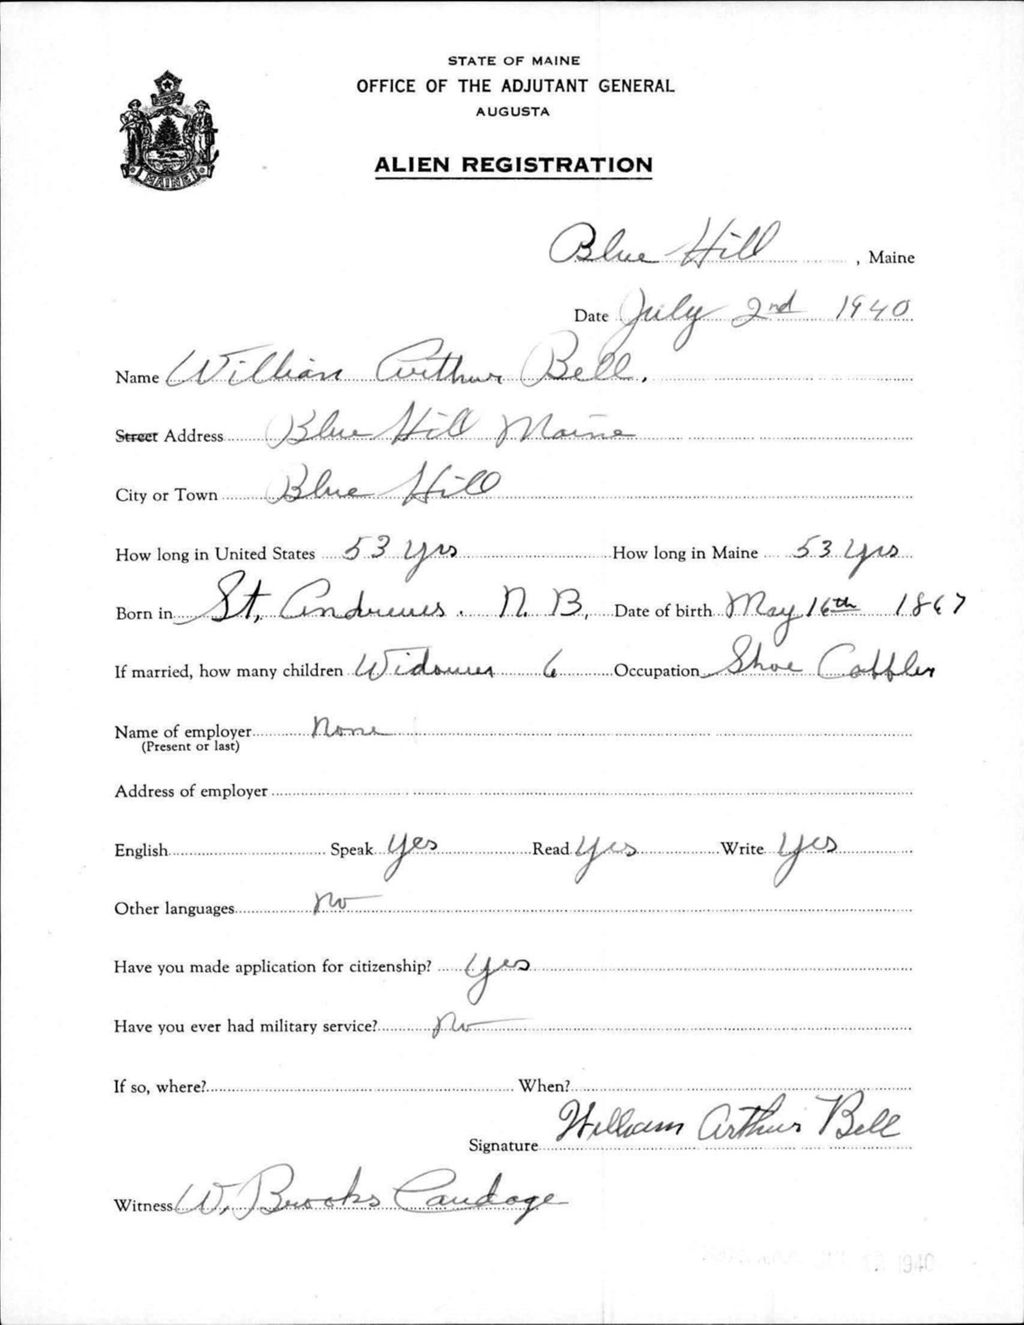 STATE OF MAINE
OFFICE OF THE ADJUTANT GENERAL
AUGUSTA
ALIEN REGISTRATION
MAINE
Blue Hill, Maine
Date July 2nd 1940
Name William Arthur Bell.
Street Address Blue Hill Maine
City or Town Blue Hill
How long in United States 53 yrs How long in Maine 53 yrs
Born in St, Andrews. N. B, Date of birth May 16th 1867
If married, how many children Widower 6 Occupation Shoe Cobbler
Name of employer None
(Present or last)
Address of employer
English Speak Yes Read Yes Write Yes
Other languages No
Have you made application for citizenship? Yes
Have you ever had military service? No
If so, where? When?
Signature William Arthur Bell
Witness W. Brooks Candage
1940